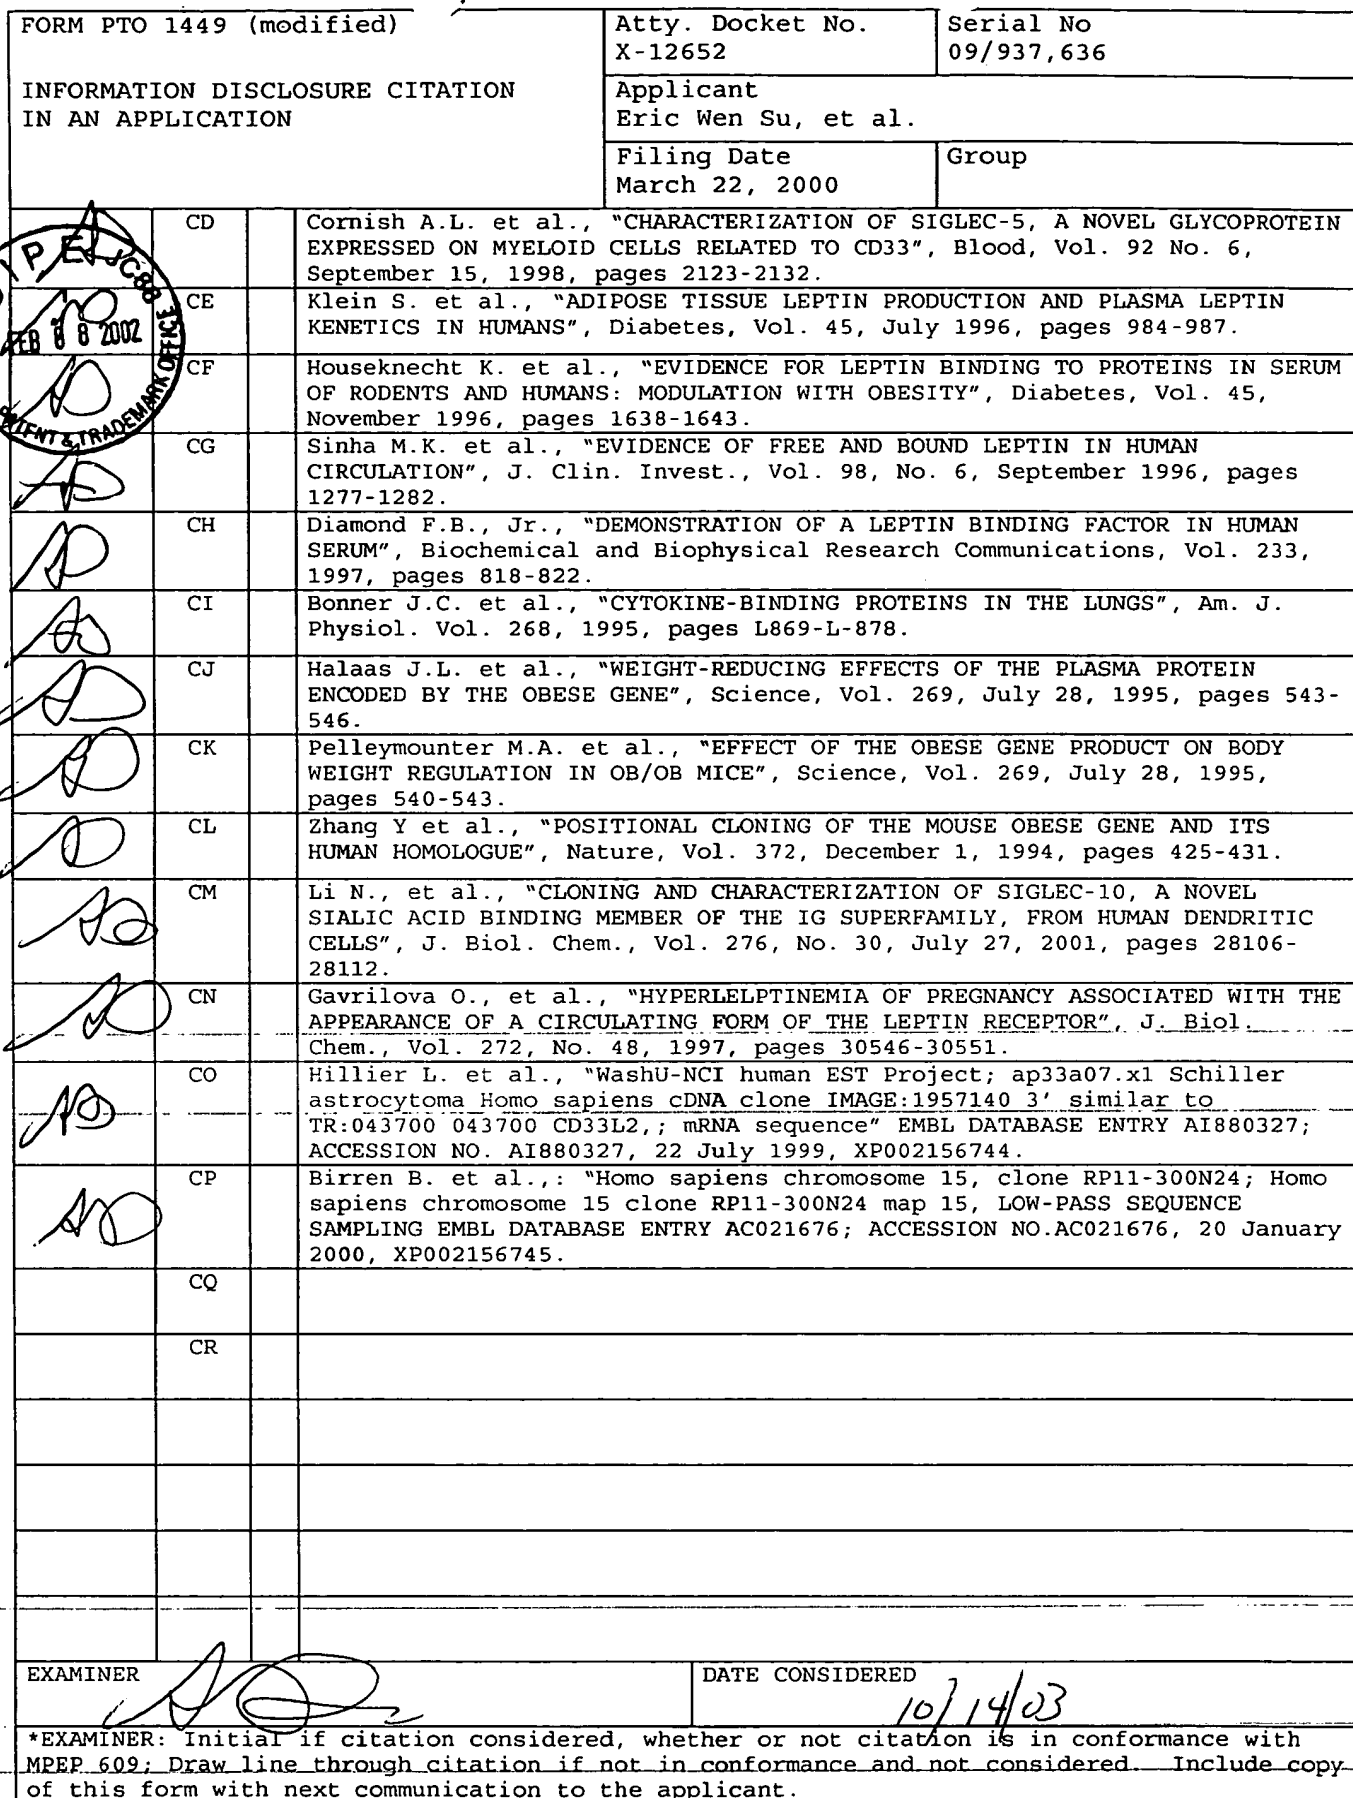 FORM PTO 1449 (modified)
INFORMATION DISCLOSURE CITATION
IN AN APPLICATION
Atty. Docket No.
X-12652
Serial No
09/937,636
Applicant
Eric Wen Su, et al.
Filing Date
March 22, 2000
Group
CD
Cornish A.L. et al., "CHARACTERIZATION OF SIGLEC-5, A NOVEL GLYCOPROTEIN
EXPRESSED ON MYELOID CELLS RELATED TO CD33", Blood, Vol. 92 No. 6,
September 15, 1998, pages 2123-2132.
CE
Klein S. et al., "ADIPOSE TISSUE LEPTIN PRODUCTION AND PLASMA LEPTIN
KENETICS IN HUMANS", Diabetes, Vol. 45, July 1996, pages 984-987.
CF
Houseknecht K. et al., "EVIDENCE FOR LEPTIN BINDING TO PROTEINS IN SERUM
OF RODENTS AND HUMANS: MODULATION WITH OBESITY", Diabetes, Vol. 45,
November 1996, pages 1638-1643.
CG
Sinha M.K. et al., "EVIDENCE OF FREE AND BOUND LEPTIN IN HUMAN
CIRCULATION", J. Clin. Invest., Vol. 98, No. 6, September 1996, pages
1277-1282.
CH
Diamond F.B., Jr., "DEMONSTRATION OF A LEPTIN BINDING FACTOR IN HUMAN
SERUM", Biochemical and Biophysical Research Communications, Vol. 233,
1997, pages 818-822.
CI
Bonner J.C. et al., "CYTOKINE-BINDING PROTEINS IN THE LUNGS", Am. J.
Physiol. Vol. 268, 1995, pages L869-L-878.
CJ
Halaas J.L. et al., "WEIGHT-REDUCING EFFECTS OF THE PLASMA PROTEIN
ENCODED BY THE OBESE GENE", Science, Vol. 269, July 28, 1995, pages 543-
546.
CK
Pelleymounter M.A. et al., "EFFECT OF THE OBESE GENE PRODUCT ON BODY
WEIGHT REGULATION IN OB/OB MICE", Science, Vol. 269, July 28, 1995,
pages 540-543.
CL
Zhang Y et al., "POSITIONAL CLONING OF THE MOUSE OBESE GENE AND ITS
HUMAN HOMOLOGUE", Nature, Vol. 372, December 1, 1994, pages 425-431.
CM
Li N., et al., "CLONING AND CHARACTERIZATION OF SIGLEC-10, A NOVEL
SIALIC ACID BINDING MEMBER OF THE IG SUPERFAMILY, FROM HUMAN DENDRITIC
CELLS", J. Biol. Chem., Vol. 276, No. 30, July 27, 2001, pages 28106-
28112.
CN
Gavrilova O., et al., "HYPERLELPTINEMIA OF PREGNANCY ASSOCIATED WITH THE
APPEARANCE OF A CIRCULATING FORM OF THE LEPTIN RECEPTOR", J. Biol.
Chem., Vol. 272, No. 48, 1997, pages 30546-30551.
CO
Hillier L. et al., "WashU-NCI human EST Project; ap33a07.x1 Schiller
astrocytoma Homo sapiens cDNA clone IMAGE:1957140 3' similar to
TR:043700 043700 CD33L2,; mRNA sequence" EMBL DATABASE ENTRY AI880327;
ACCESSION NO. AI880327, 22 July 1999, XP002156744.
CP
Birren B. et al.,: "Homo sapiens chromosome 15, clone RP11-300N24; Homo
sapiens chromosome 15 clone RP11-300N24 map 15, LOW-PASS SEQUENCE
SAMPLING EMBL DATABASE ENTRY AC021676; ACCESSION NO.AC021676, 20 January
2000, XP002156745.
CQ
CR
EXAMINER
DATE CONSIDERED
10/14/03
*EXAMINER: Initial if citation considered, whether or not citation is in conformance with
MPEP 609; Draw line through citation if not in conformance and not considered. Include copy
of this form with next communication to the applicant.
JC88
FEB 2002
TRADEMARK OFFICE